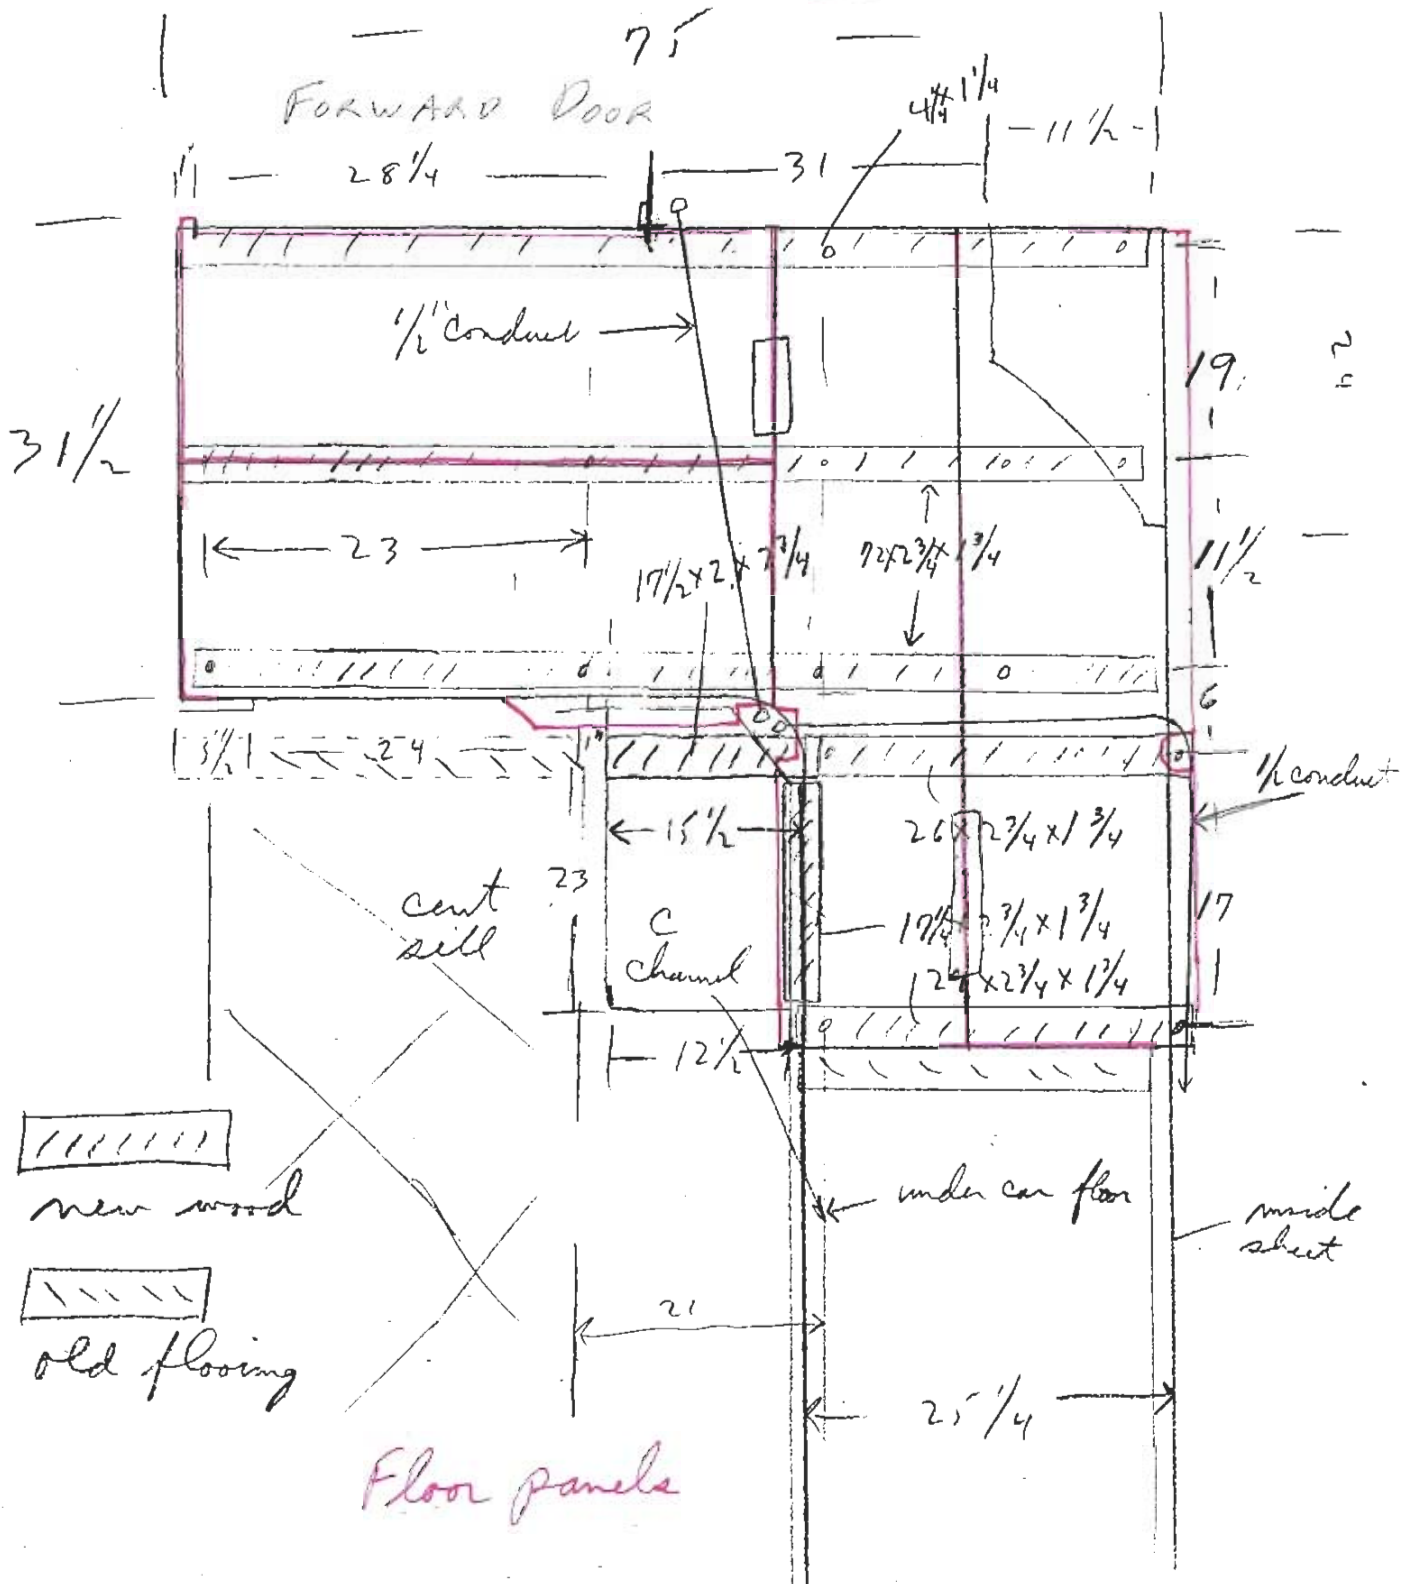 75
FORWARD DOOR
1" 28 1/4 31 11 1/2
1/2" conduct
19
31 1/2
23
17 1/2 x 2 x 1 3/4
72 x 2 3/4 x 1 3/4
11 1/2
6
3 1/2 24 1"
1/2 conduct
15 1/2
26 x 2 3/4 x 1 3/4
cent
sill
23
C
channel
17 1/4 x 2 3/4 x 1 3/4
17
x 2 3/4 x 1 3/4
12 1/2
new wood
under car floor
inside
sheet
old flooring
21
25 1/4
Floor panels